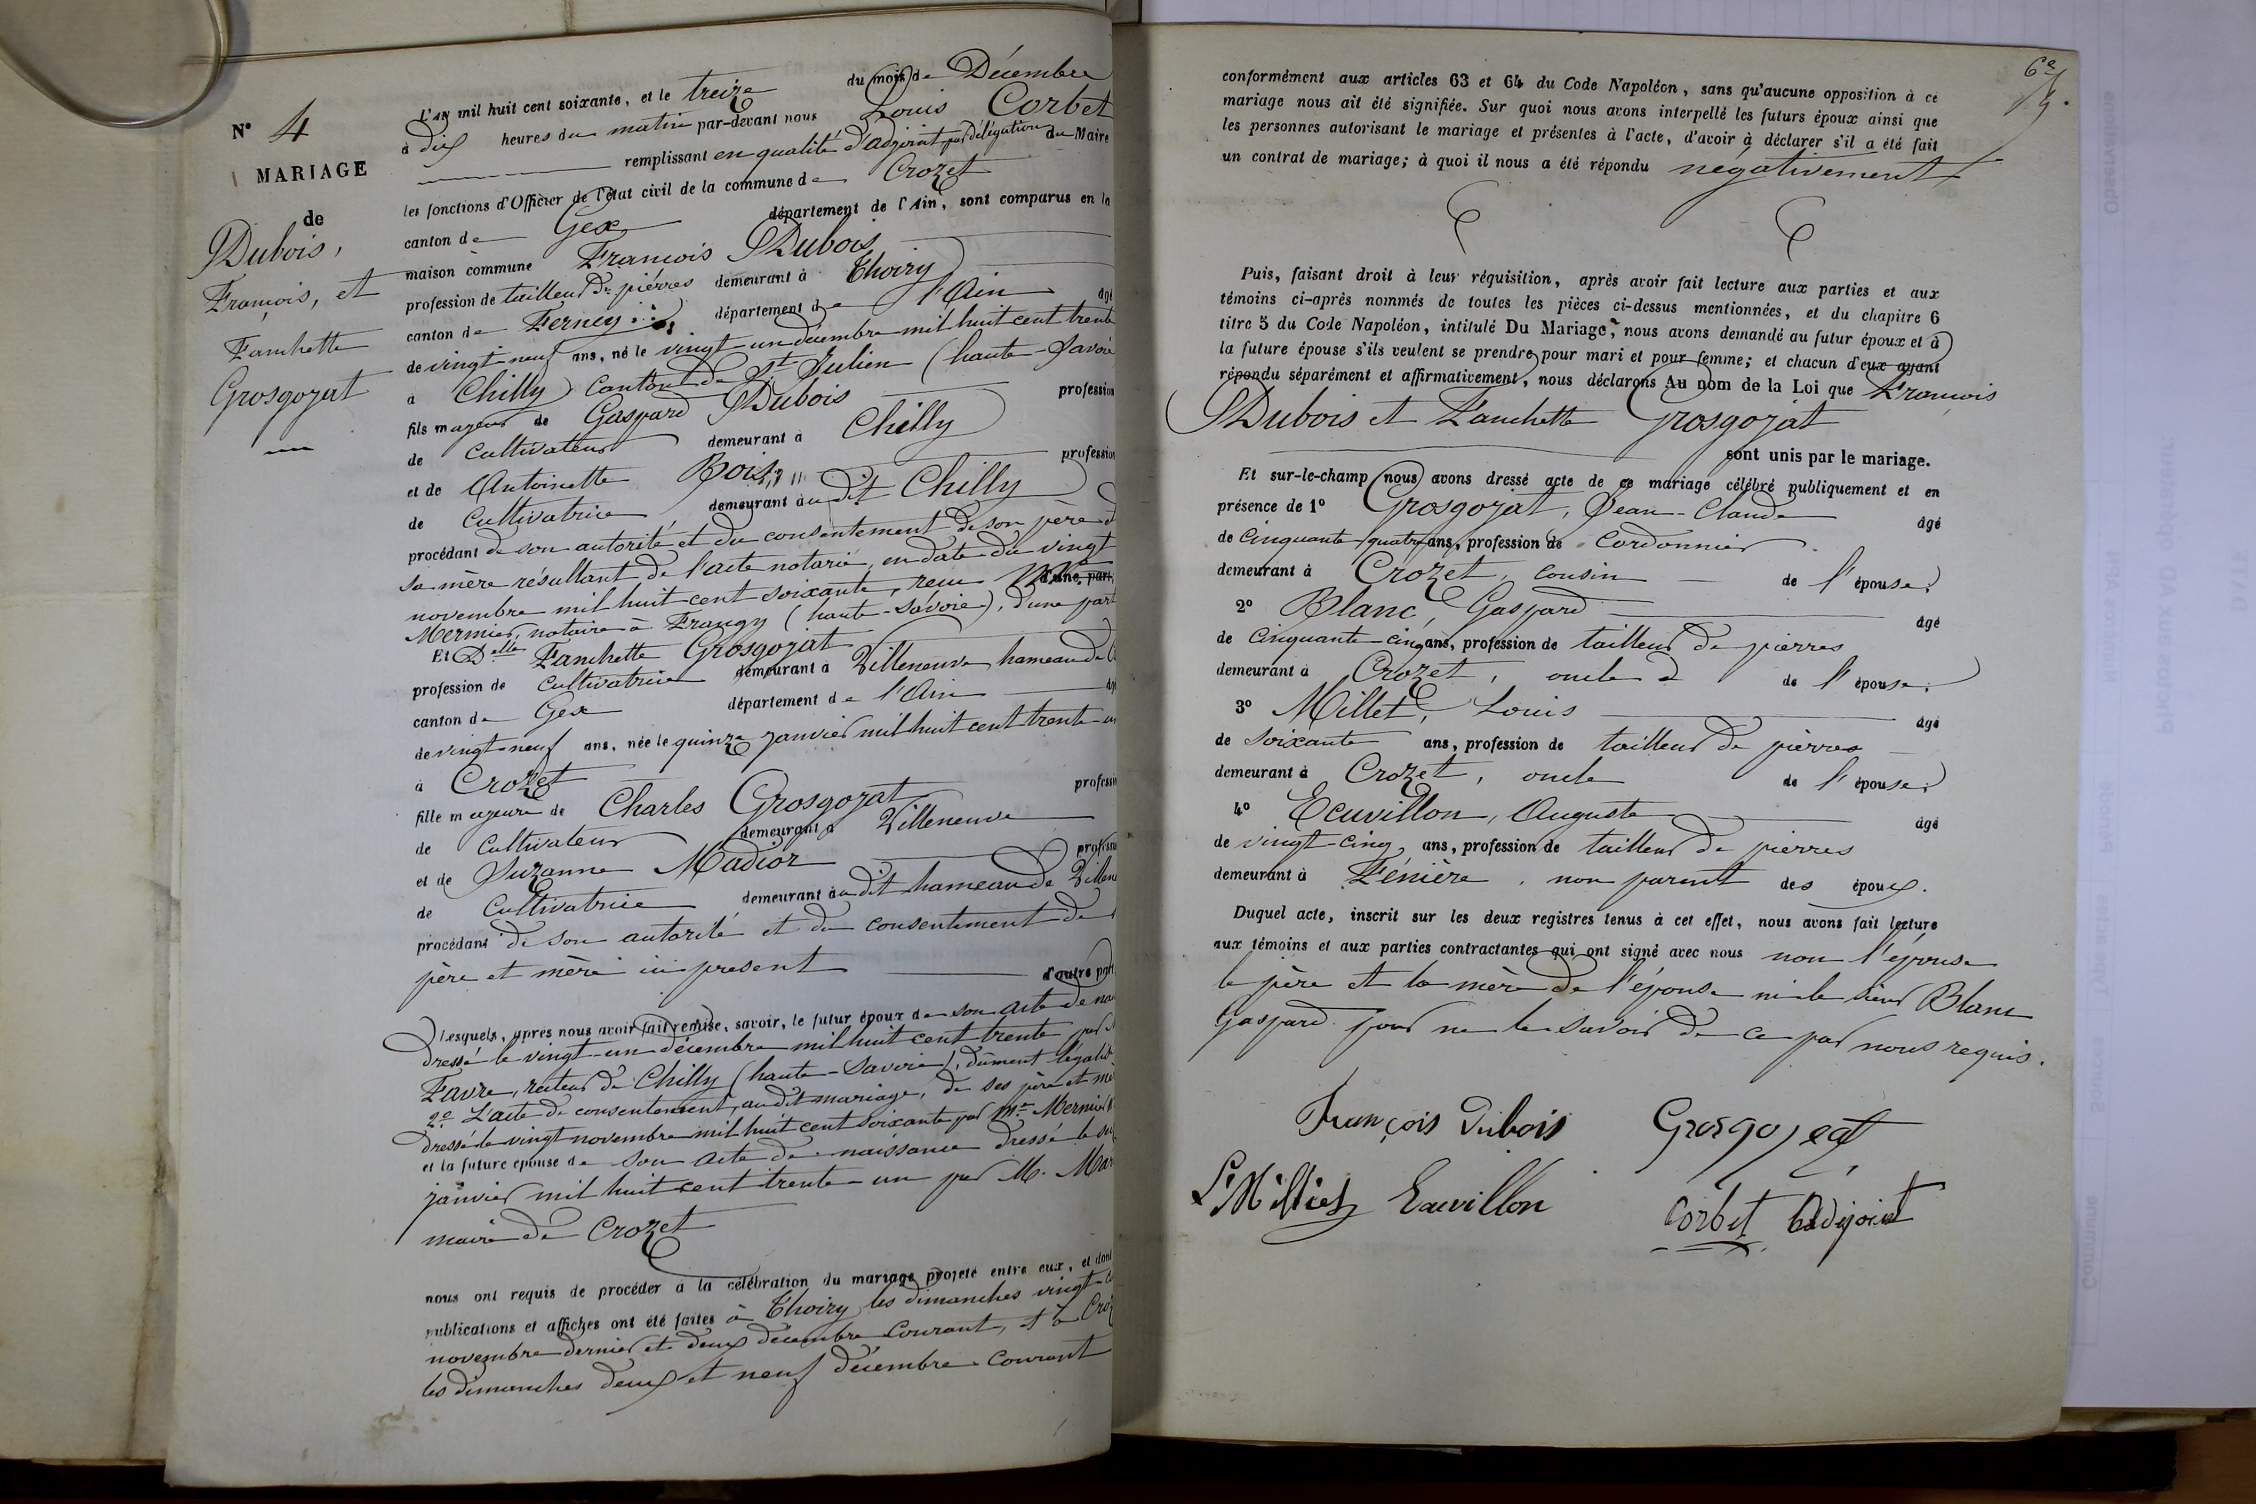 N° 4
MARIAGE
de
Dubois,
François, et
Fanchette
Grosgojat
L'an mil huit cent soixante, et le treize du mois de Décembre
à dix heures du matin par-devant nous Louis Corbet
remplissant en qualité d'adjoint par délégation du Maire
les fonctions d'Officier de l'état civil de la commune de Crozet
canton de Gex département de l'Ain, sont comparus en la
maison commune François Dubois
profession de tailleur de pierres demeurant à Thoiry
canton de Ferney département de l'Ain âgé
de vingt-neuf ans, né le vingt-un décembre mil huit cent trente
à Chilly canton de St Julien (haute-Savoie
fils majeur de Gaspard Dubois profession
de Cultivateur demeurant à Chilly
et de Antoinette Bois profession
de Cultivatrice demeurant à udit Chilly
procédant de son autorité et du consentement de son père et
sa mère résultant de l'acte notarié, en date du vingt
novembre mil huit-cent soixante, reçu Me d'une part,
Mermier, notaire à Frangy (haute-Savoie), d'une part
Et Delle Fanchette Grosgojat
profession de Cultivatrice demeurant à Villeneuve hameau de
canton de Gex département de l'Ain âgé
de vingt-neuf ans, née le quinze janvier mil huit cent trente-un
à Crozet
fille majeure de Charles Grosgojat profession
de Cultivateur demeurant à Villeneuve
et de Suzanne Madior profession
de Cultivatrice demeurant à udit hameau de Villene
procédant de son autorité et du consentement de
père et mère ici present d'autre part
Lesquels, après nous avoir fait remise, savoir, le futur époux de son acte de nai
dressé le vingt-un décembre mil huit cent trente par
Favre, recteur de Chilly (haute-Savoie), dûment légalisé
2° L'acte de consentement, audit mariage, de ses père et mè
dressé le vingt novembre mil huit cent soixante par Me Mermier
et la future épouse de son acte de naissance dressé le
janvier mil huit cent trente-un par M. Mar
maire de Crozet
nous ont requis de procéder à la célébration du mariage projeté entre eux, et dont
publications et affiches ont été faites à Thoiry les dimanches vingt-c
novembre dernier et deux décembre courant, et à Croz
les dimanches deux et neuf décembre courant
conformément aux articles 63 et 64 du Code Napoléon, sans qu'aucune opposition à ce
mariage nous ait été signifiée. Sur quoi nous avons interpellé les futurs époux ainsi que
les personnes autorisant le mariage et présentes à l'acte, d'avoir à déclarer s'il a été fait
un contrat de mariage; à quoi il nous a été répondu négativement
Puis, faisant droit à leur réquisition, après avoir fait lecture aux parties et aux
témoins ci-après nommés de toutes les pièces ci-dessus mentionnées, et du chapitre 6
titre 5 du Code Napoléon, intitulé Du Mariage, nous avons demandé au futur époux et à
la future épouse s'ils veulent se prendre pour mari et pour femme; et chacun d'eux ayant
répondu séparément et affirmativement, nous déclarons Au nom de la Loi que François
Dubois et Fanchette Grosgojat
sont unis par le mariage.
Et sur-le-champ nous avons dressé acte de ce mariage célébré publiquement et en
présence de 1° Grosgojat, Jean-Claude âgé
de Cinquante-quatre ans, profession de Cordonnier
demeurant à Crozet, cousin de l'épouse;
2° Blanc, Gaspard âgé
de Cinquante-cinq ans, profession de tailleur de pierres
demeurant à Crozet, oncle de l'épouse;
3° Millet, Louis âgé
de Soixante ans, profession de tailleur de pierres
demeurant à Crozet, oncle de l'épouse;
4° Ecuvillon, Auguste âgé
de vingt-cinq ans, profession de tailleur de pierres
demeurant à Fénière, non parent des époux.
Duquel acte, inscrit sur les deux registres tenus à cet effet, nous avons fait lecture
aux témoins et aux parties contractantes qui ont signé avec nous non l'épouse
le père et la mère de l'épouse ni le sieur Blanc
Gaspard pour ne le savoir de ce par nous requis.
François Dubois Grosgojeat
Ls Milliet Ecuvillon
Corbet adjoint